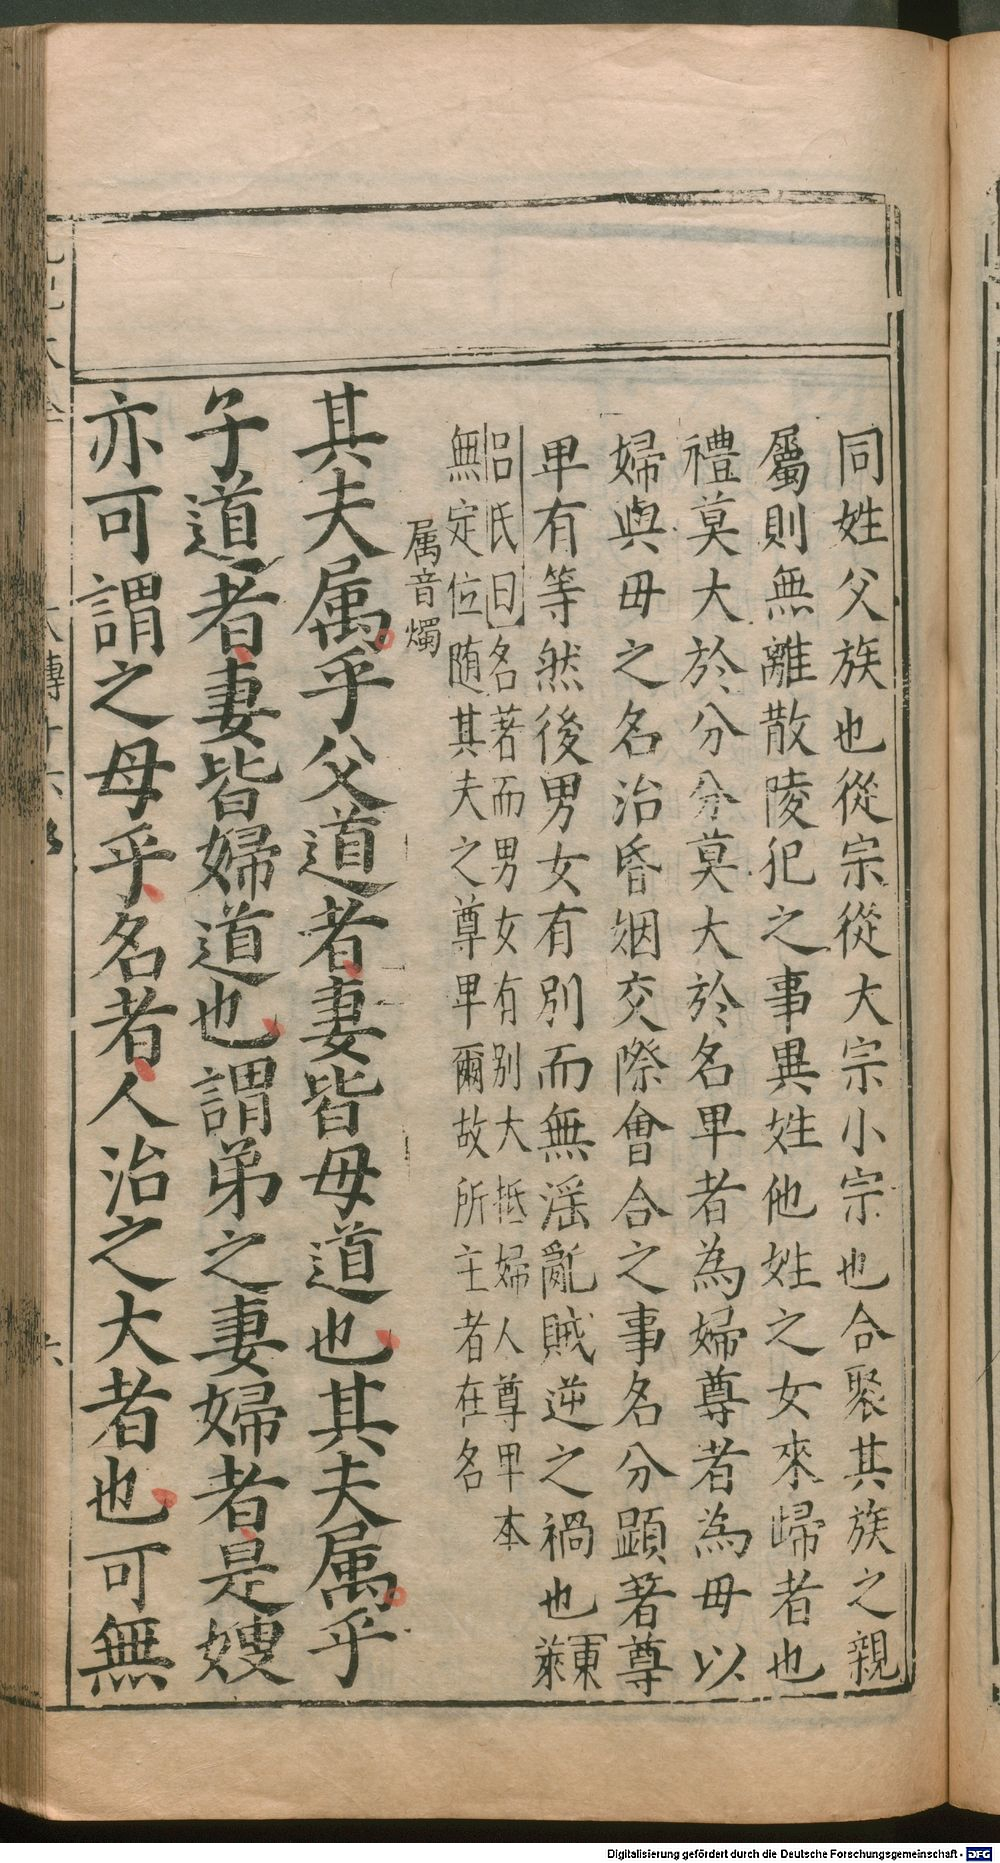 同姓父族也從宗從大宗小宗也合聚其族之親
屬則無離散陵犯之事異姓他姓之女來歸者也
禮莫大於分分莫大於名卑者為婦尊者為毋以
婦與毋之名治昏姻交際會合之事名分顯著尊
卑有等然後男女有別而無滛亂賊逆之禍也東萊
呂氏曰名著而男女有别大抵婦人尊卑本
無定位随其夫之尊卑爾故所主者在名
属音燭
其夫属乎父道者妻皆毋道也其夫属乎
子道者妻皆婦道也謂弟之妻婦者是嫂
亦可謂之母乎名者人治之大者也可無
大傳十六
六
Digitalisierung gefördert durch die Deutsche Forschungsgemeinschaft - DFG